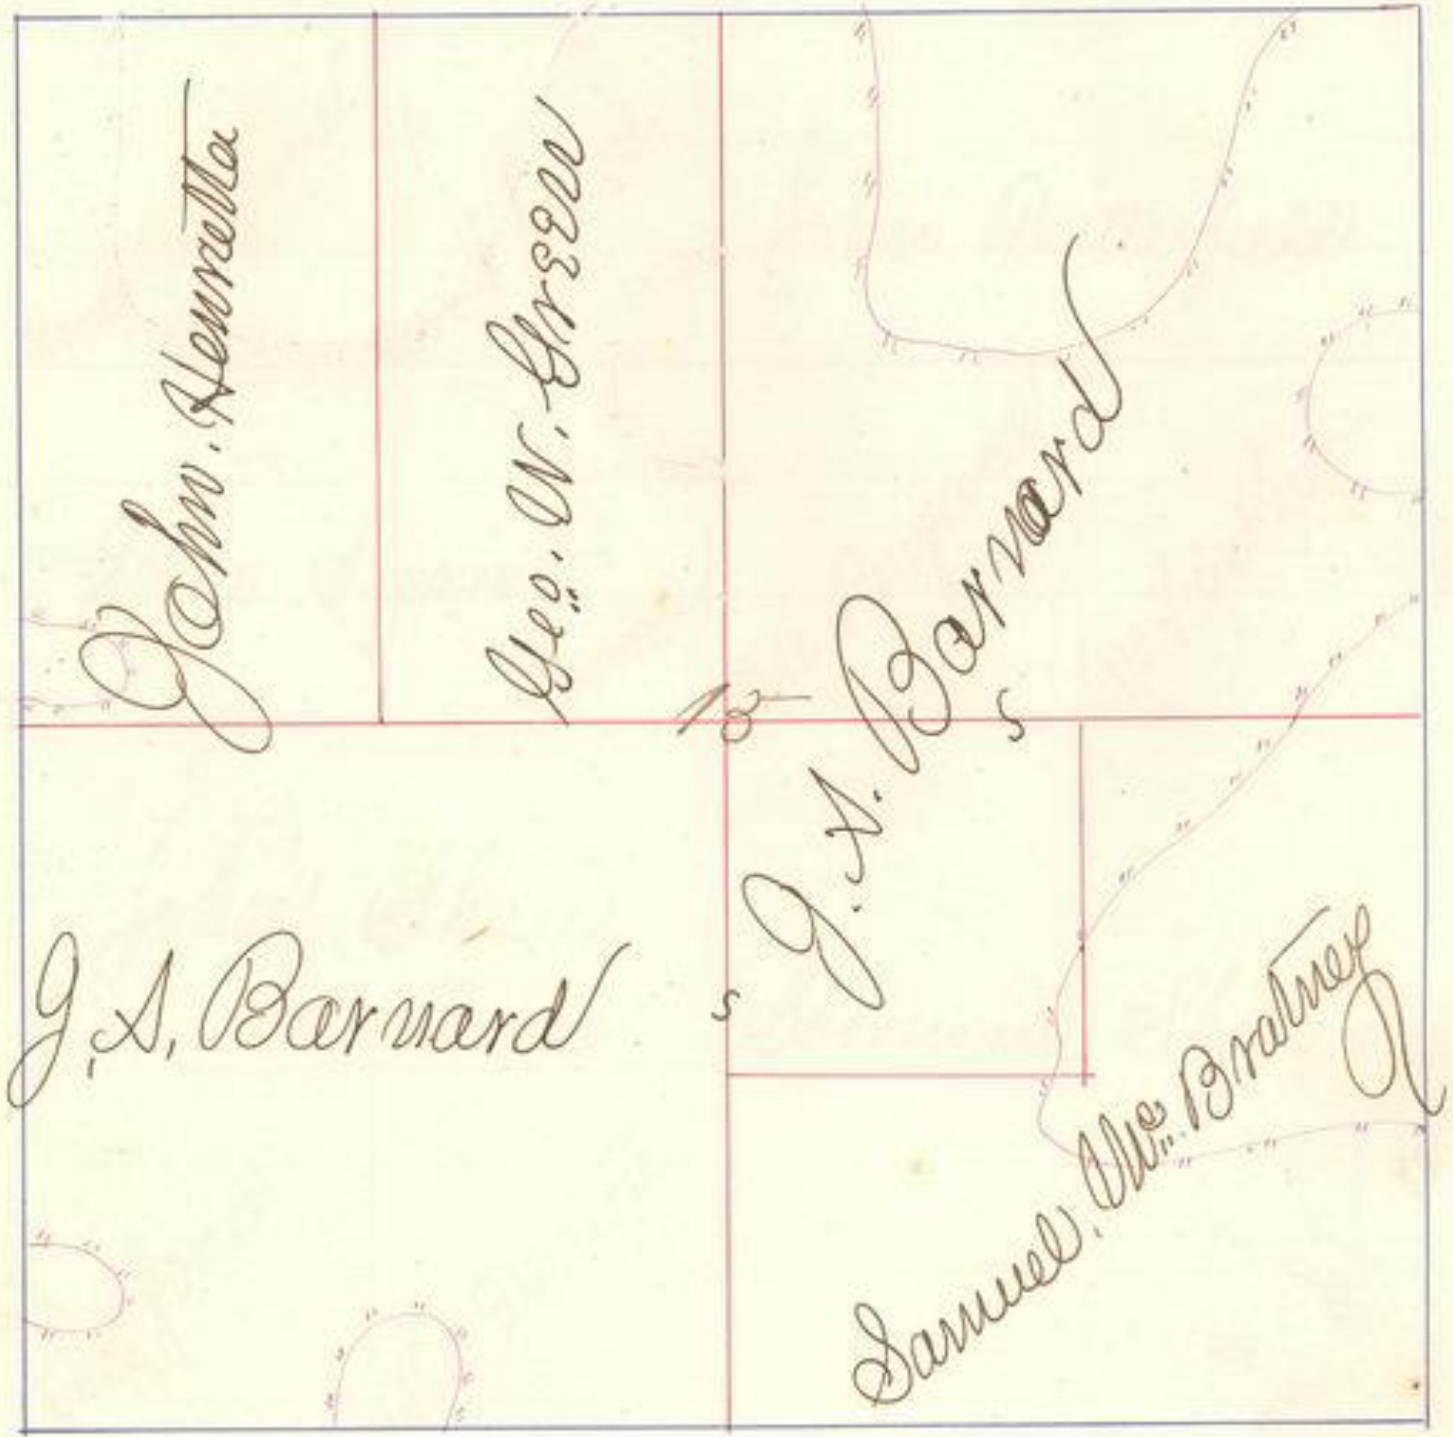 John. Henretta
Geo. W. Green
J. S. Barnard
15
S
S
J. S. Barnard
Samuel. Mc. Bratney